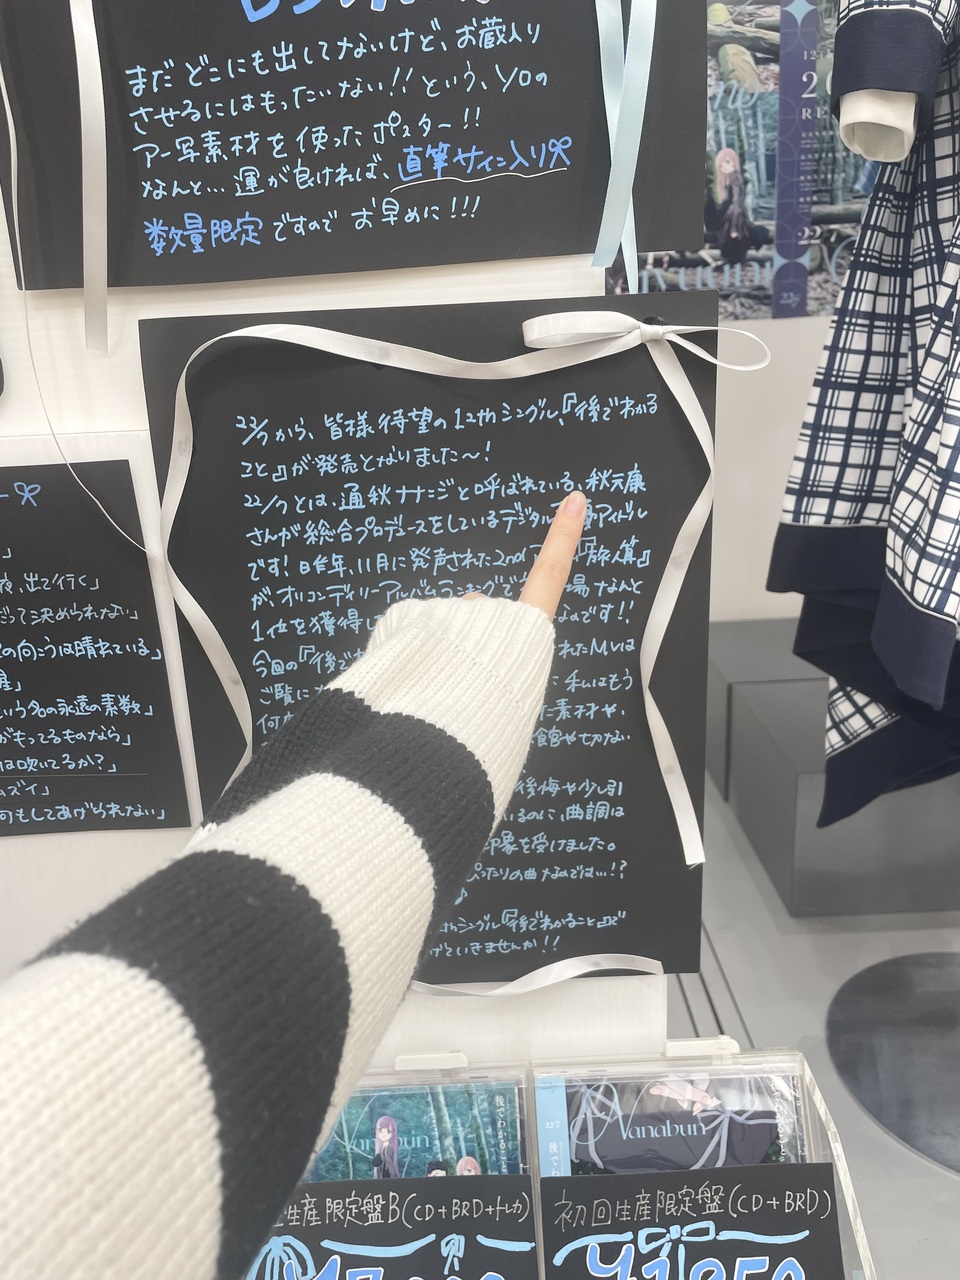 まだどこにも出してないけど、お蔵入り
させるにはもったいない!!という、ソロの
アー写素材を使ったポスター!!
なんと…運が良ければ、直筆サイン入り
数量限定ですのでお早めに!!!
22/7から、皆様待望の12thシングル『後でわかる
こと』が発売となりました〜!
22/7とは、通称ナナニジと呼ばれている、秋元康
さんが総合プロデュースをしているデジタル アイドル
です!昨年、11月に発売された2nd 『旅人算』
が、オリコンデイリーアルバムランキングで 場なんと
1位を獲得し なのです!!
今回の『後で されたMVは
ご覧に に私はもう
何 た素材や、
館や切ない
後悔や少し引
いるのに、曲調は
印象を受けました。
ぴったりの曲なのでは…!?
♪
thシングル『後でわかること』で
げていきませんか!!
」
夜、出て行く」
だって決められない」
の向こうは晴れている」
星」
いう名の永遠の素数」
がもってるものなら」
は吹いてるか?」
ムズイ」
何もしてあげられない」
12th
RE
22
22/7
Nanabun
後でわかること
生産限定盤B(CD+BRD+トレカ)
22/7
Nanabun
初回生産限定盤(CD+BRD)